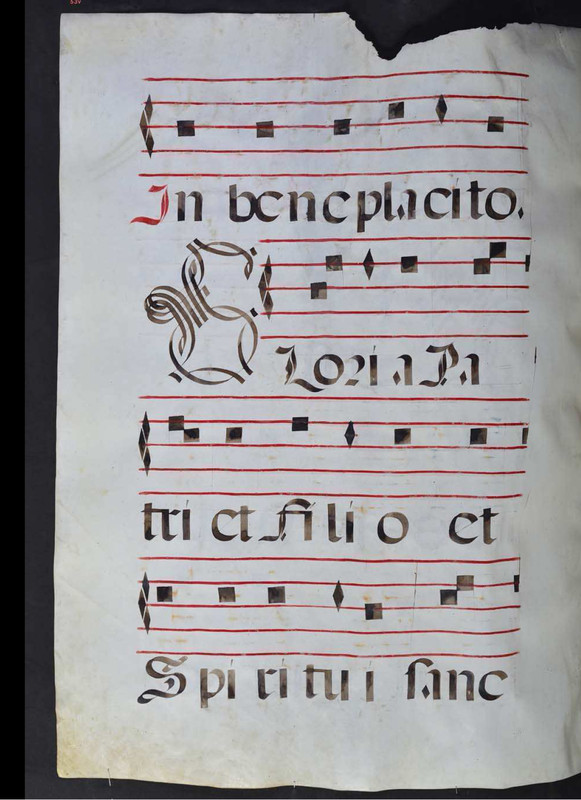 In beneplacito.
GLoria Pa
tri et Filio et
Spiritui sanc